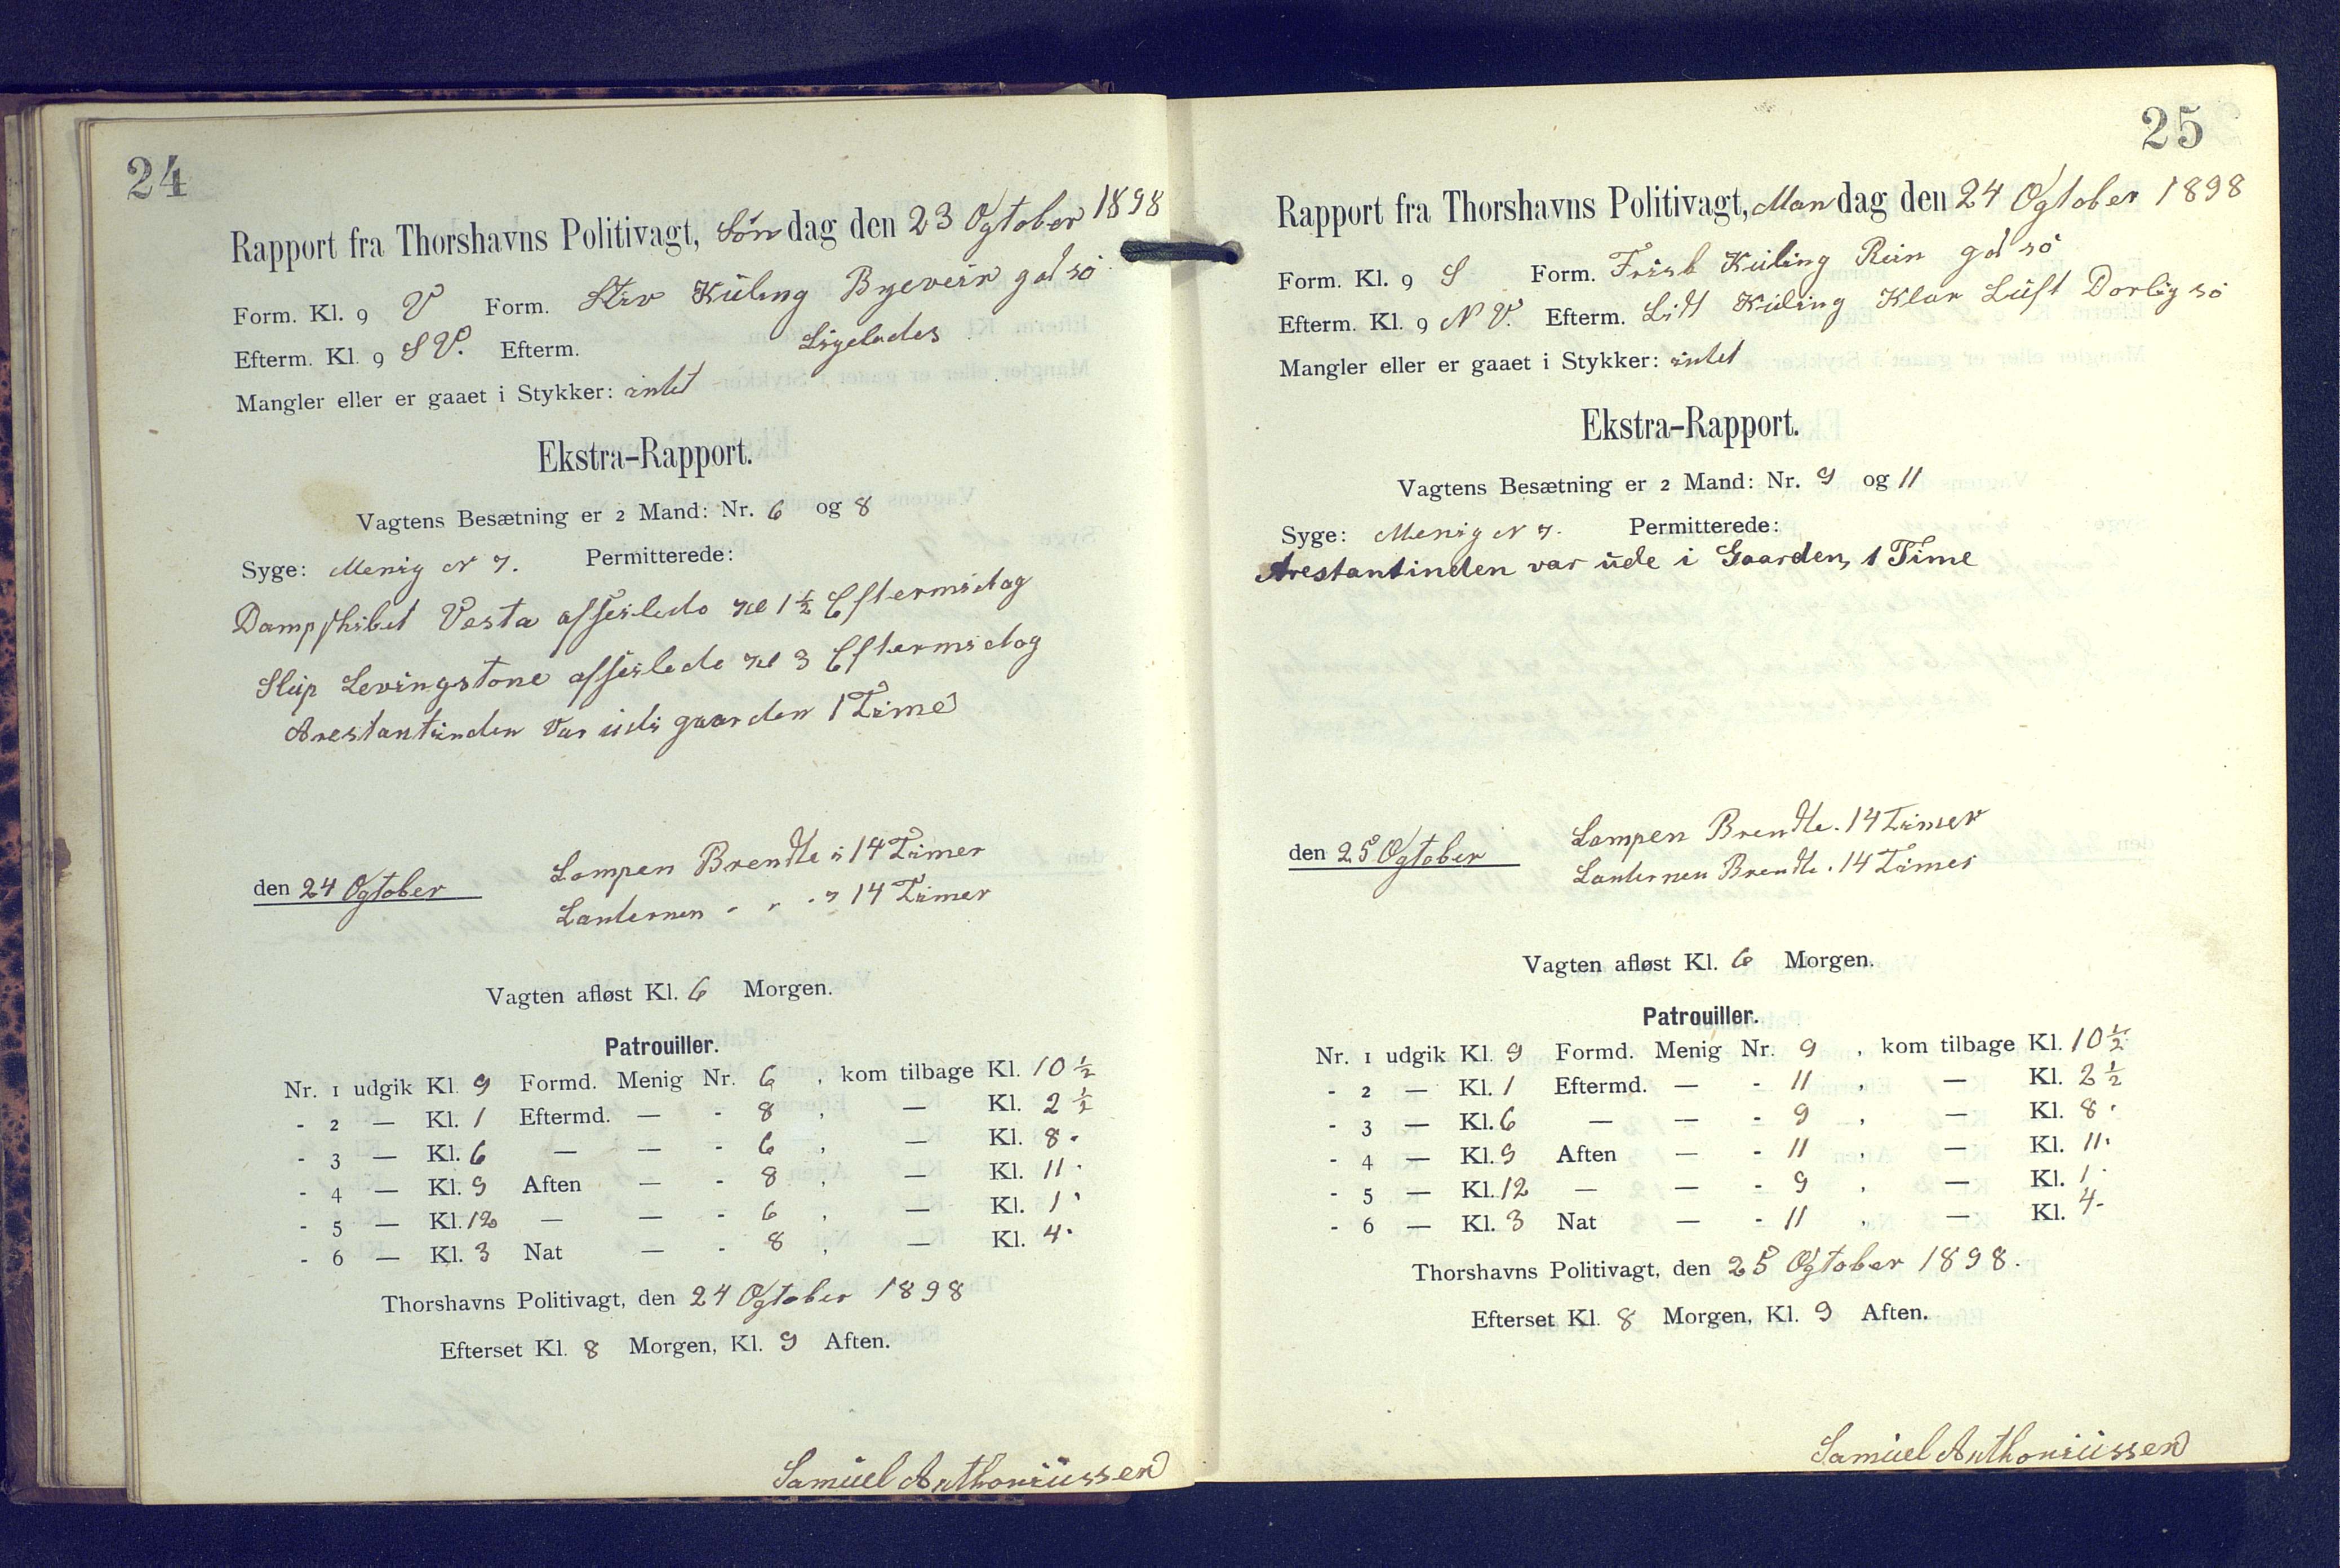 24
Rapport fra Thorshavns Politivagt, Søndag den 23 Ogtober 1898
Form. Kl. 9 V Form. Stiv Kuling Byeveir god sø
Efterm. Kl. 9 SV. Efterm. Ligeledes
Mangler eller er gaaet i Stykker: intet
Ekstra-Rapport.
Vagtens Besætning er 2 Mand: Nr. 6 og 8
Syge: Menig N 7. Permitterede:
Dampskibet Vesta afseilede Kl 1½ Eftermidag
Slup Levingstone afseilede Kl 3 Eftermidag
Arestantinden var udi gaarden 1 Time
den 24 Ogtober
Lampen Brendte i 14 Timer
Lanternen - - - 14 Timer
Vagten afløst Kl. 6 Morgen.
Patrouiller.
Nr. 1 udgik Kl. 9 Formd. Menig Nr. 6, kom tilbage Kl. 10½
- 2 — Kl. 1 Eftermd. — - 8, — Kl. 2½
- 3 — Kl. 6 — — - 6, — Kl. 8.
- 4 — Kl. 9 Aften — - 8, — Kl. 11.
- 5 — Kl. 12 — — - 6, — Kl. 1.
- 6 — Kl. 3 Nat — - 8, — Kl. 4.
Thorshavns Politivagt, den 24 Ogtober 1898
Efterset Kl. 8 Morgen, Kl. 9 Aften.
Samuel Anthoniussen
25
Rapport fra Thorshavns Politivagt, Mandag den 24 Ogtober 1898
Form. Kl. 9 S Form. Frisk Kuling Rein god sø
Efterm. Kl. 9 N V. Efterm. Lidt Kuling Klar Luft Dorlig sø
Mangler eller er gaaet i Stykker: intet
Ekstra-Rapport.
Vagtens Besætning er 2 Mand: Nr. 9 og 11
Syge: Menig N 7. Permitterede:
Arestantinden var ude i Gaarden, 1 Time
den 25 Ogtober
Lampen Brendte. 14 Timer
Lanternen Brendte. 14 Timer
Vagten afløst Kl. 6 Morgen.
Patrouiller.
Nr. 1 udgik Kl. 9 Formd. Menig Nr. 9, kom tilbage Kl. 10½
- 2 — Kl. 1 Eftermd. — - 11, — Kl. 2½
- 3 — Kl. 6 — — - 9, — Kl. 8.
- 4 — Kl. 9 Aften — - 11, — Kl. 11.
- 5 — Kl. 12 — — - 9, — Kl. 1.
- 6 — Kl. 3 Nat — - 11, — Kl. 4-
Thorshavns Politivagt, den 25 Ogtober 1898.
Efterset Kl. 8 Morgen, Kl. 9 Aften.
Samuel Anthoniussen